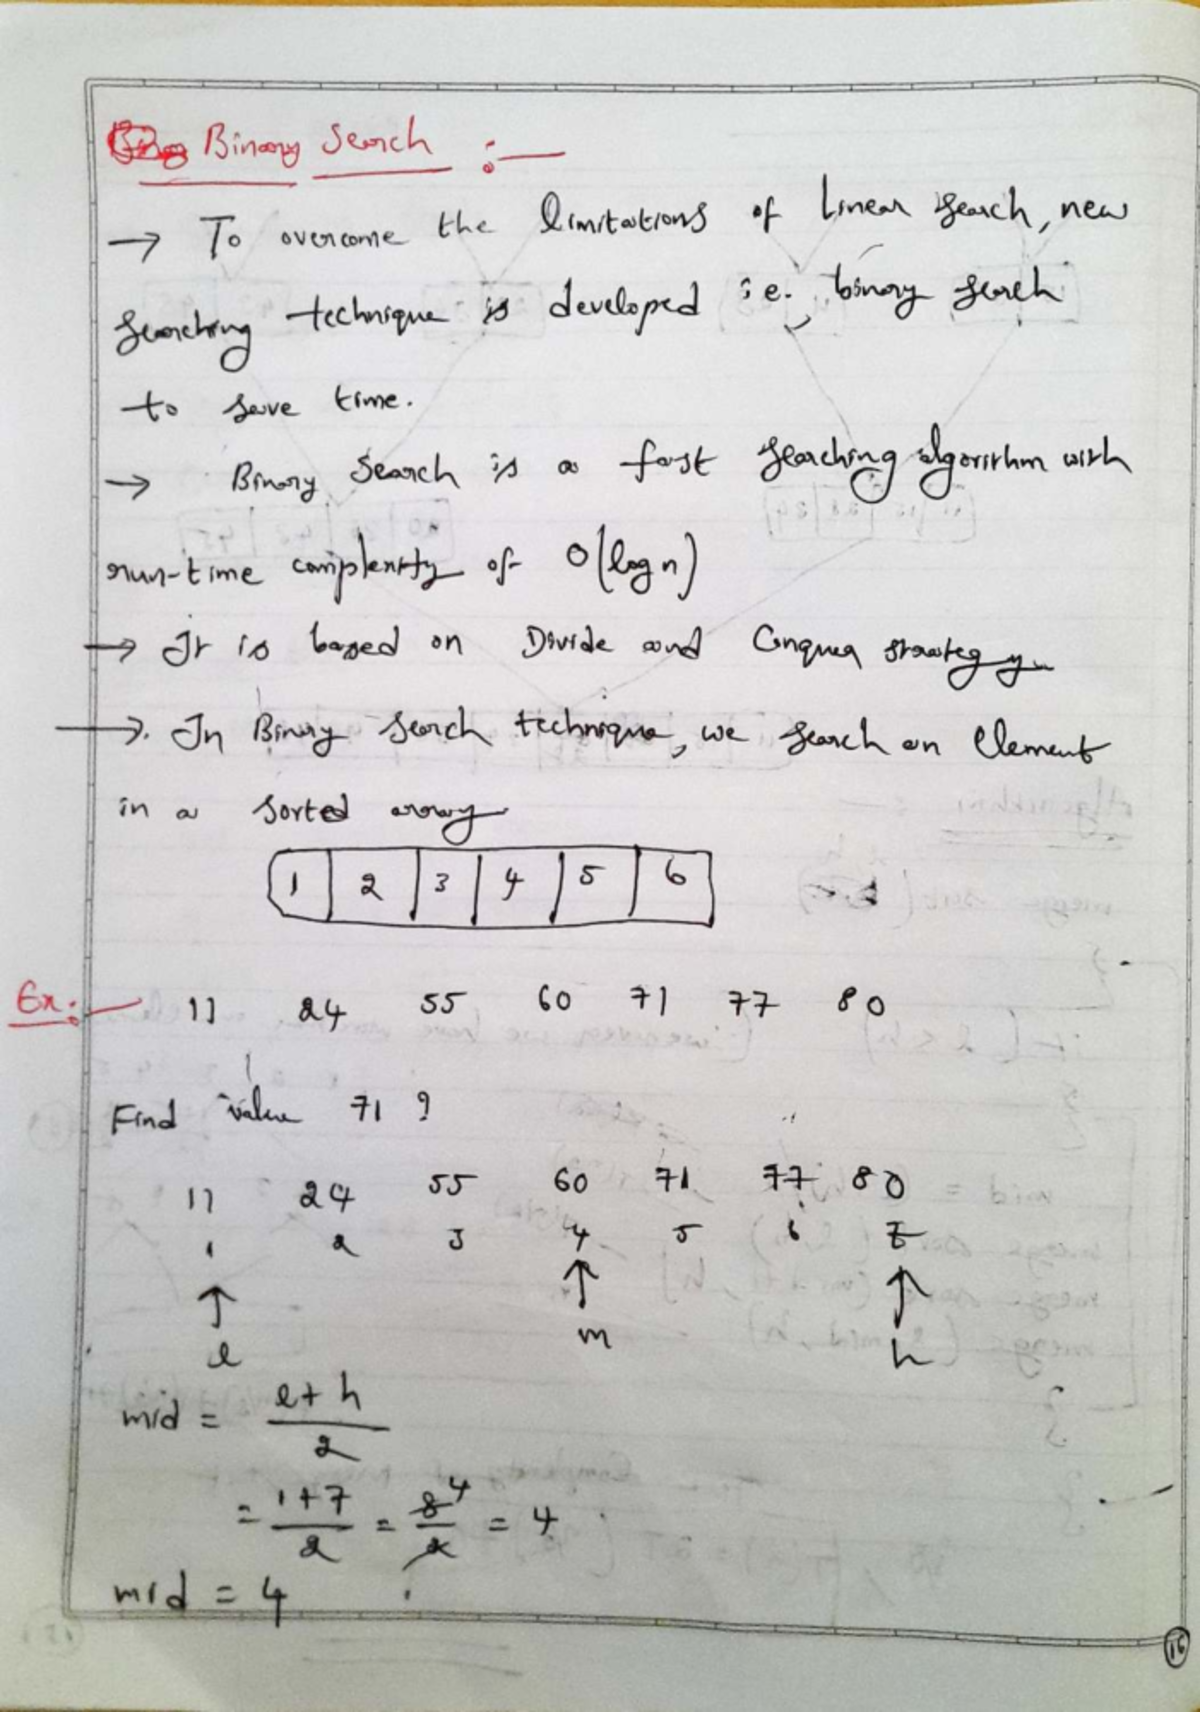 Binary Search :-
→ To overcome the limitations of Linear Search, new
Searching technique is developed i.e., binary search
to save time.
→ Binary Search is a fast searching algorithm with
run-time complexity of O(log n)
→ It is based on Divide and Conquer strategy
→ In Binary Search technique, we search an element
in a sorted array
1 2 3 4 5 6
Ex:- 11 24 55 60 71 77 80
Find value 71 ?
11 24 55 60 71 77 80
1 2 3 4 5 6 7
↑ ↑ ↑
l m h
mid = l+h
2
= 1+7 = 8 4 = 4
2 2
mid = 4
16